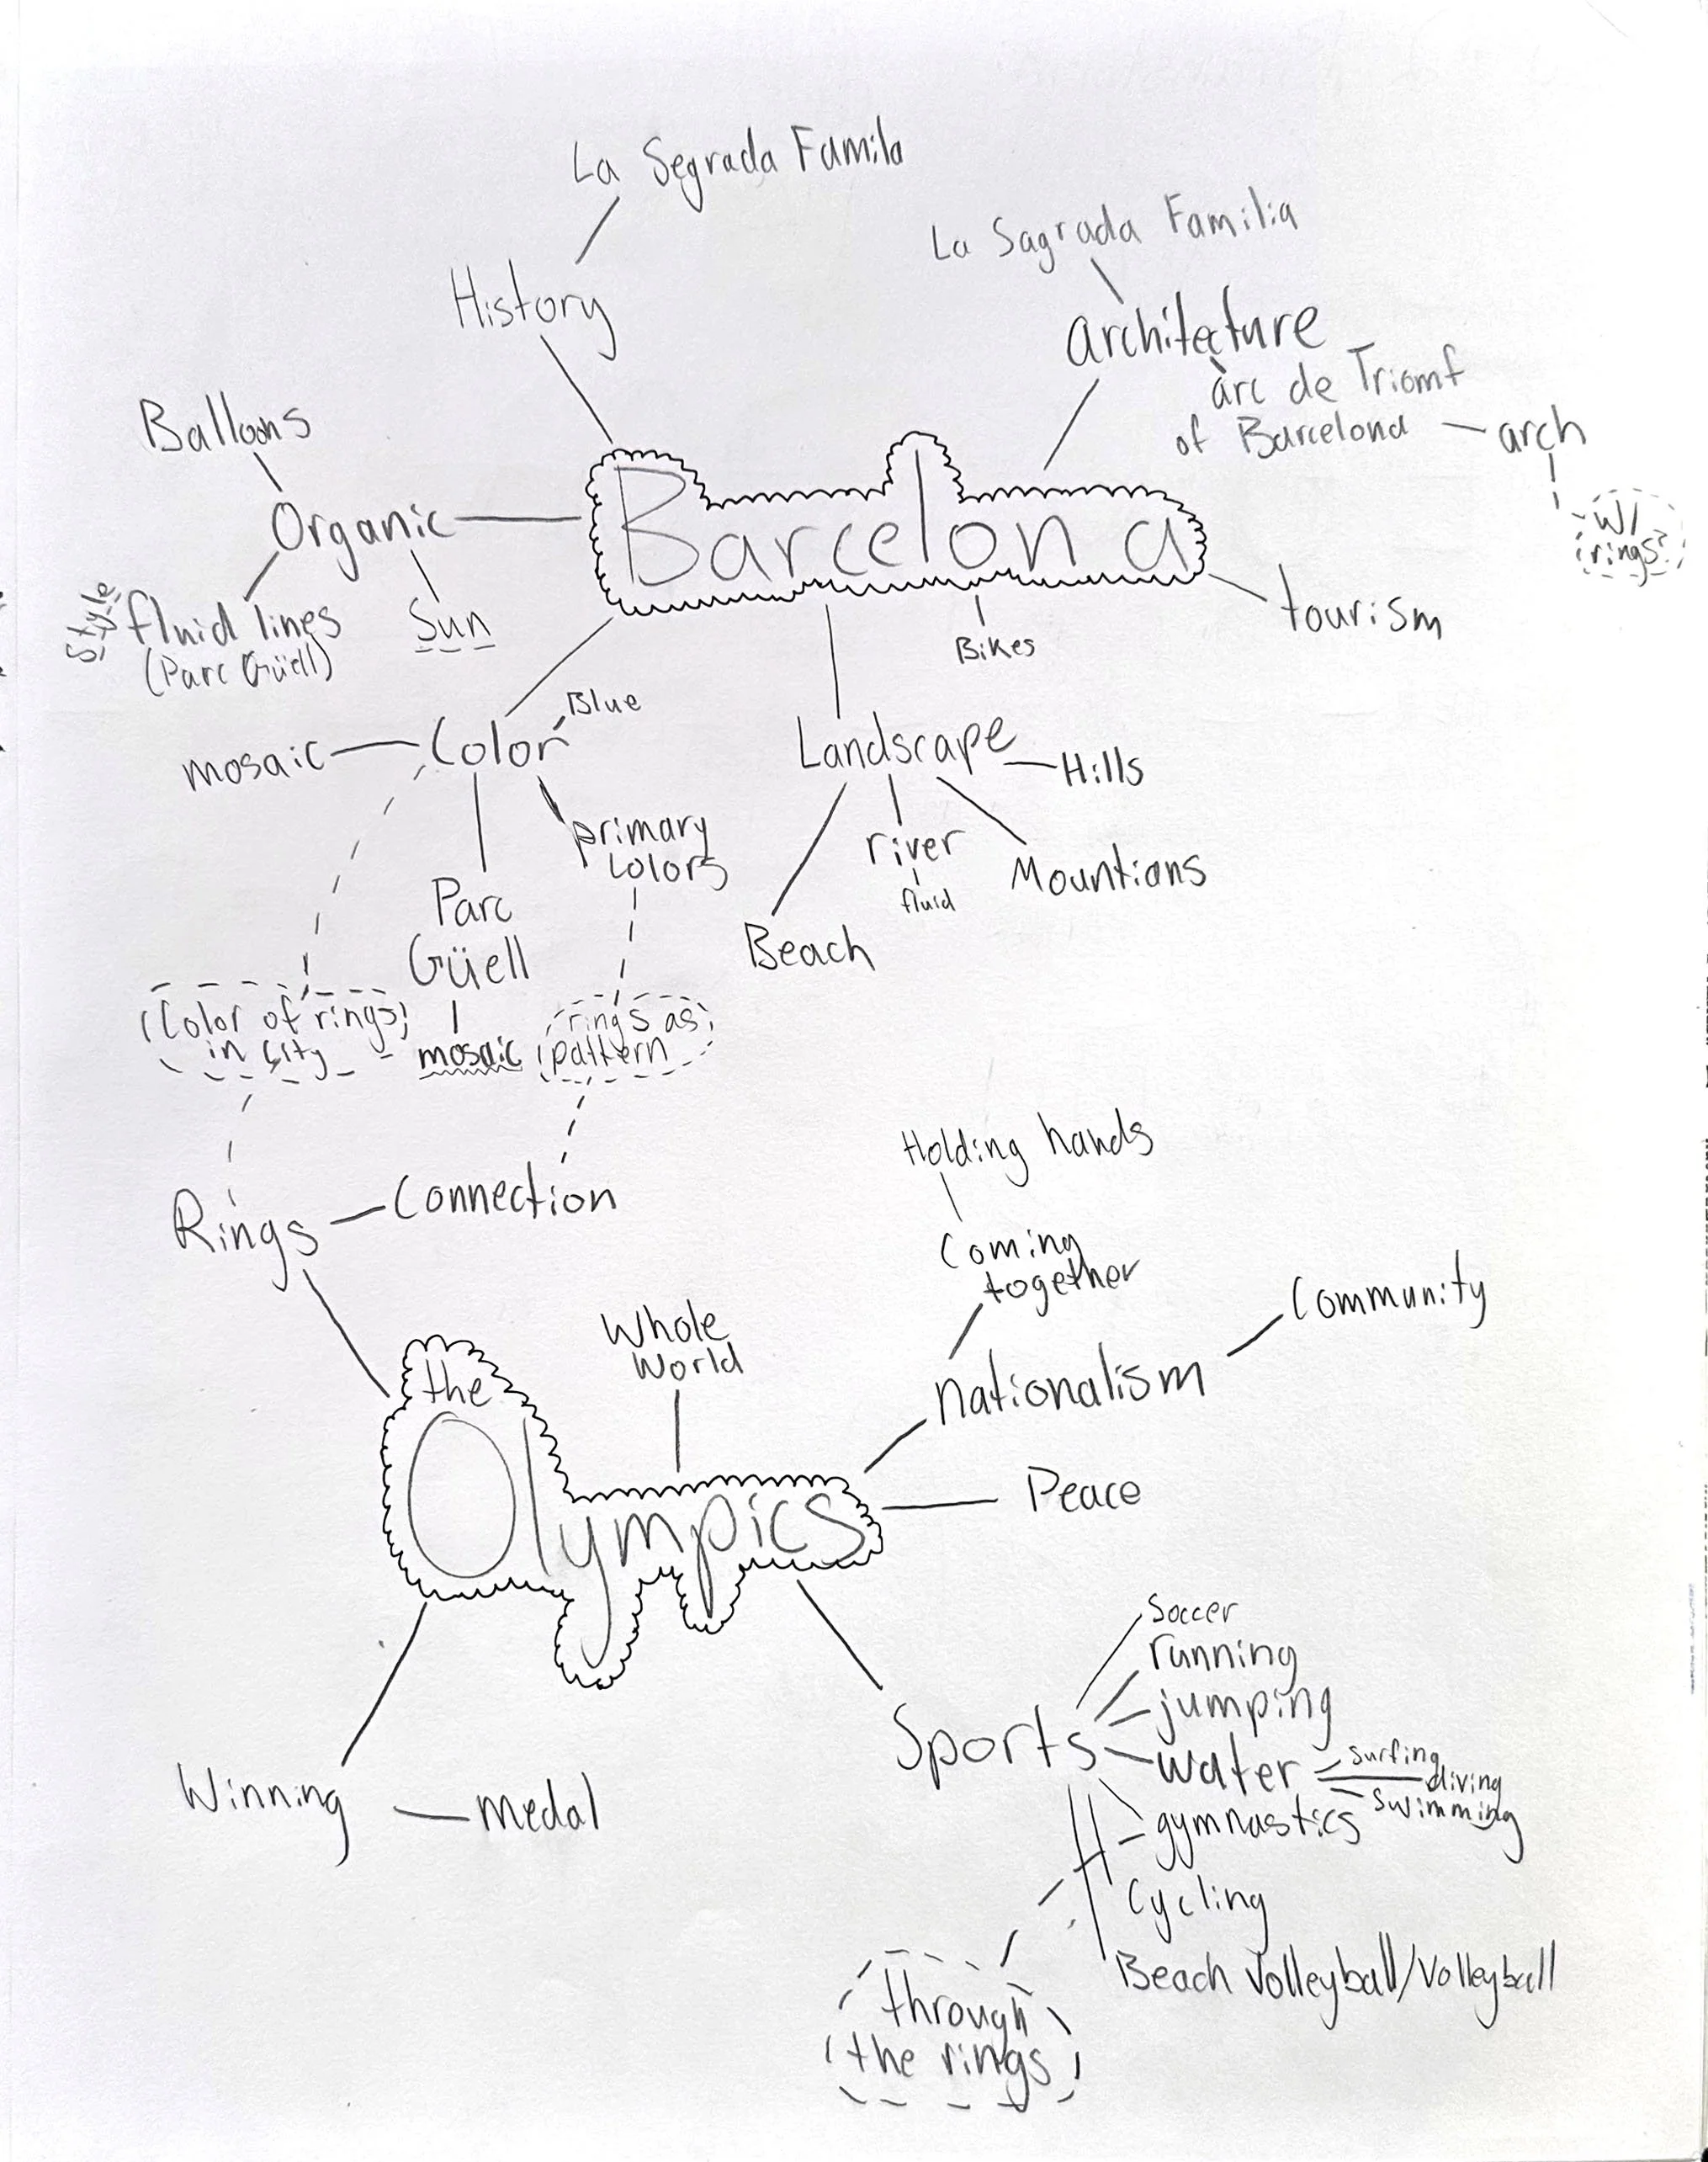 La Segrada Famila
La Sagrada Familia
History
architecture
arc de Triomf
of Barcelona
arch
w/
rings?
Balloons
Organic
Barcelona
Style
fluid lines
(Parc Güell)
Sun
tourism
Bikes
Blue
mosaic
Color
Landscape
Hills
primary
colors
river
fluid
Mountians
Parc
Güell
Beach
Color of rings
in city
mosaic
rings as
pattern
Holding hands
Rings
Connection
Coming
together
Community
Whole
World
nationalism
the
Olympics
Peace
Soccer
running
jumping
Sports
water
surfing
diving
swimming
Winning
medal
gymnastics
Cycling
Beach Volleyball/Volleyball
through
the rings